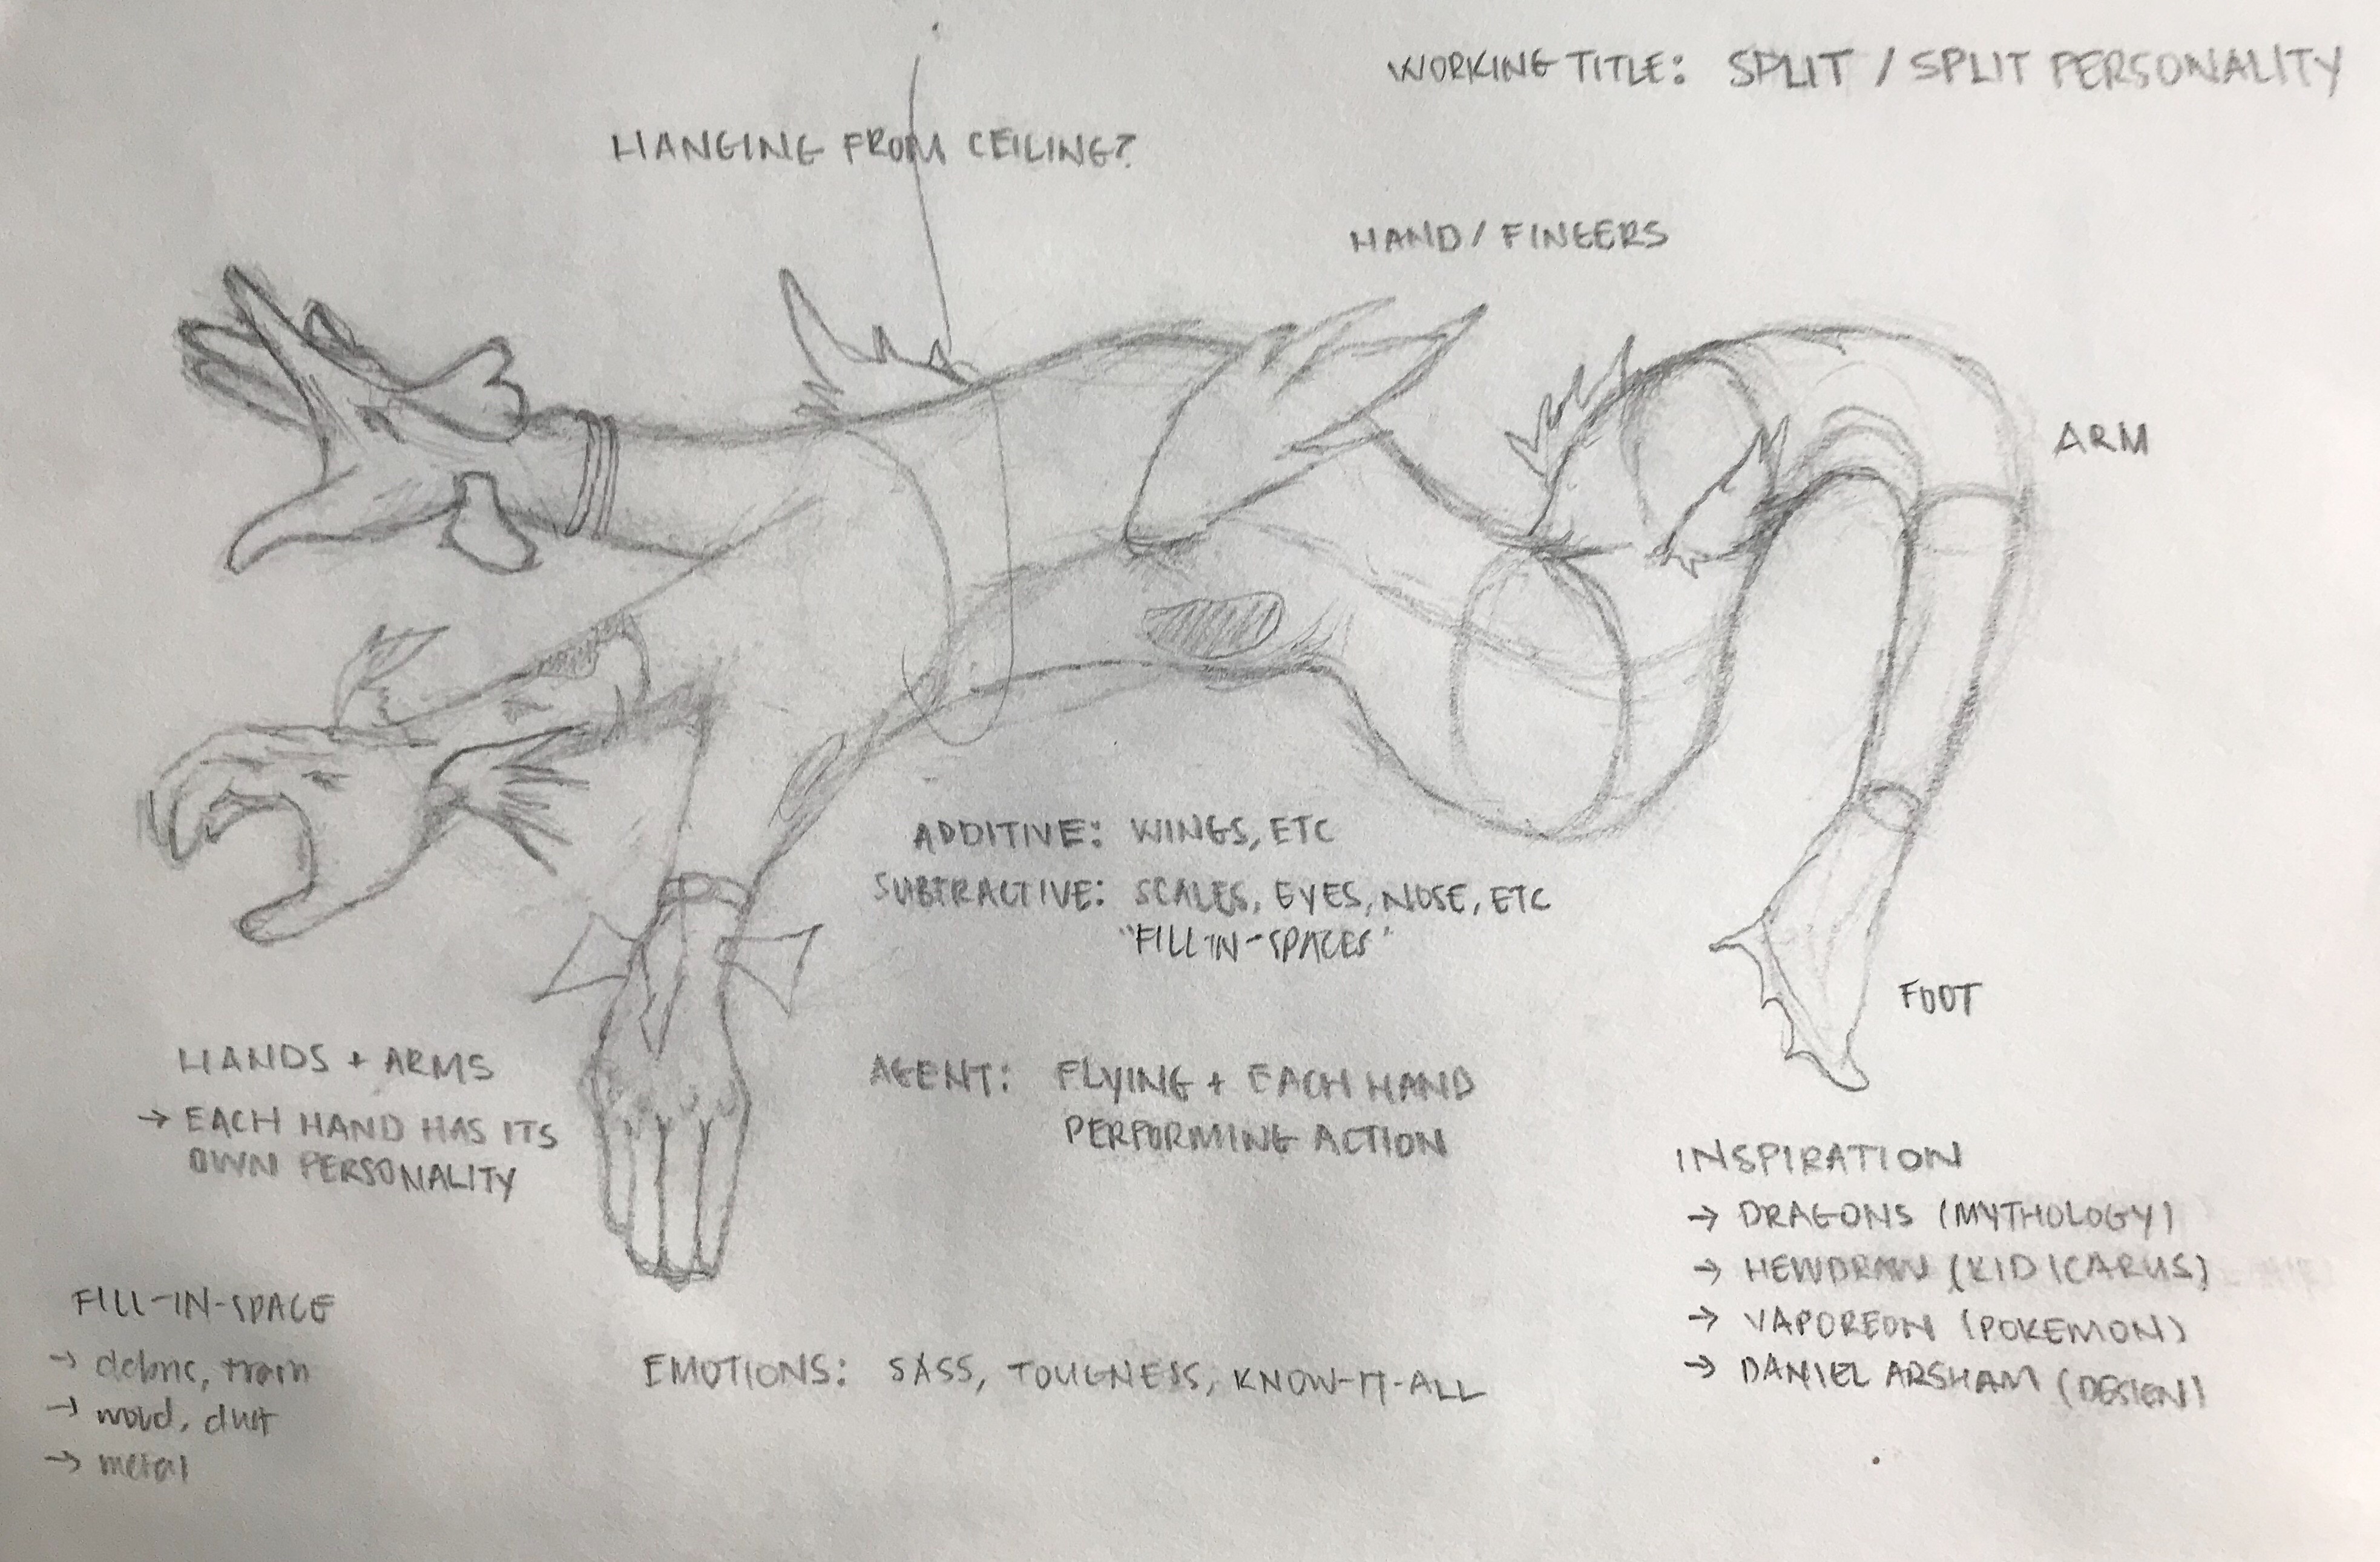 WORKING TITLE: SPLIT / SPLIT PERSONALITY
HANGING FROM CEILING?
HAND / FINGERS
ARM
ADDITIVE: WINGS, ETC
SUBTRACTIVE: SCALES, EYES, NOSE, ETC
"FILL-IN-SPACES"
FOOT
HANDS + ARMS
→ EACH HAND HAS ITS
OWN PERSONALITY
AGENT: FLYING + EACH HAND
PERFORMING ACTION
INSPIRATION
→ DRAGONS (MYTHOLOGY)
→ HEWDRAW (KID ICARUS)
→ VAPOREON (POKEMON)
→ DANIEL ARSHAM (DESIGN)
FILL-IN-SPACE
→ debric, train
→ wood, dust
→ metal
EMOTIONS: SASS, TOUGNESS, KNOW-IT-ALL